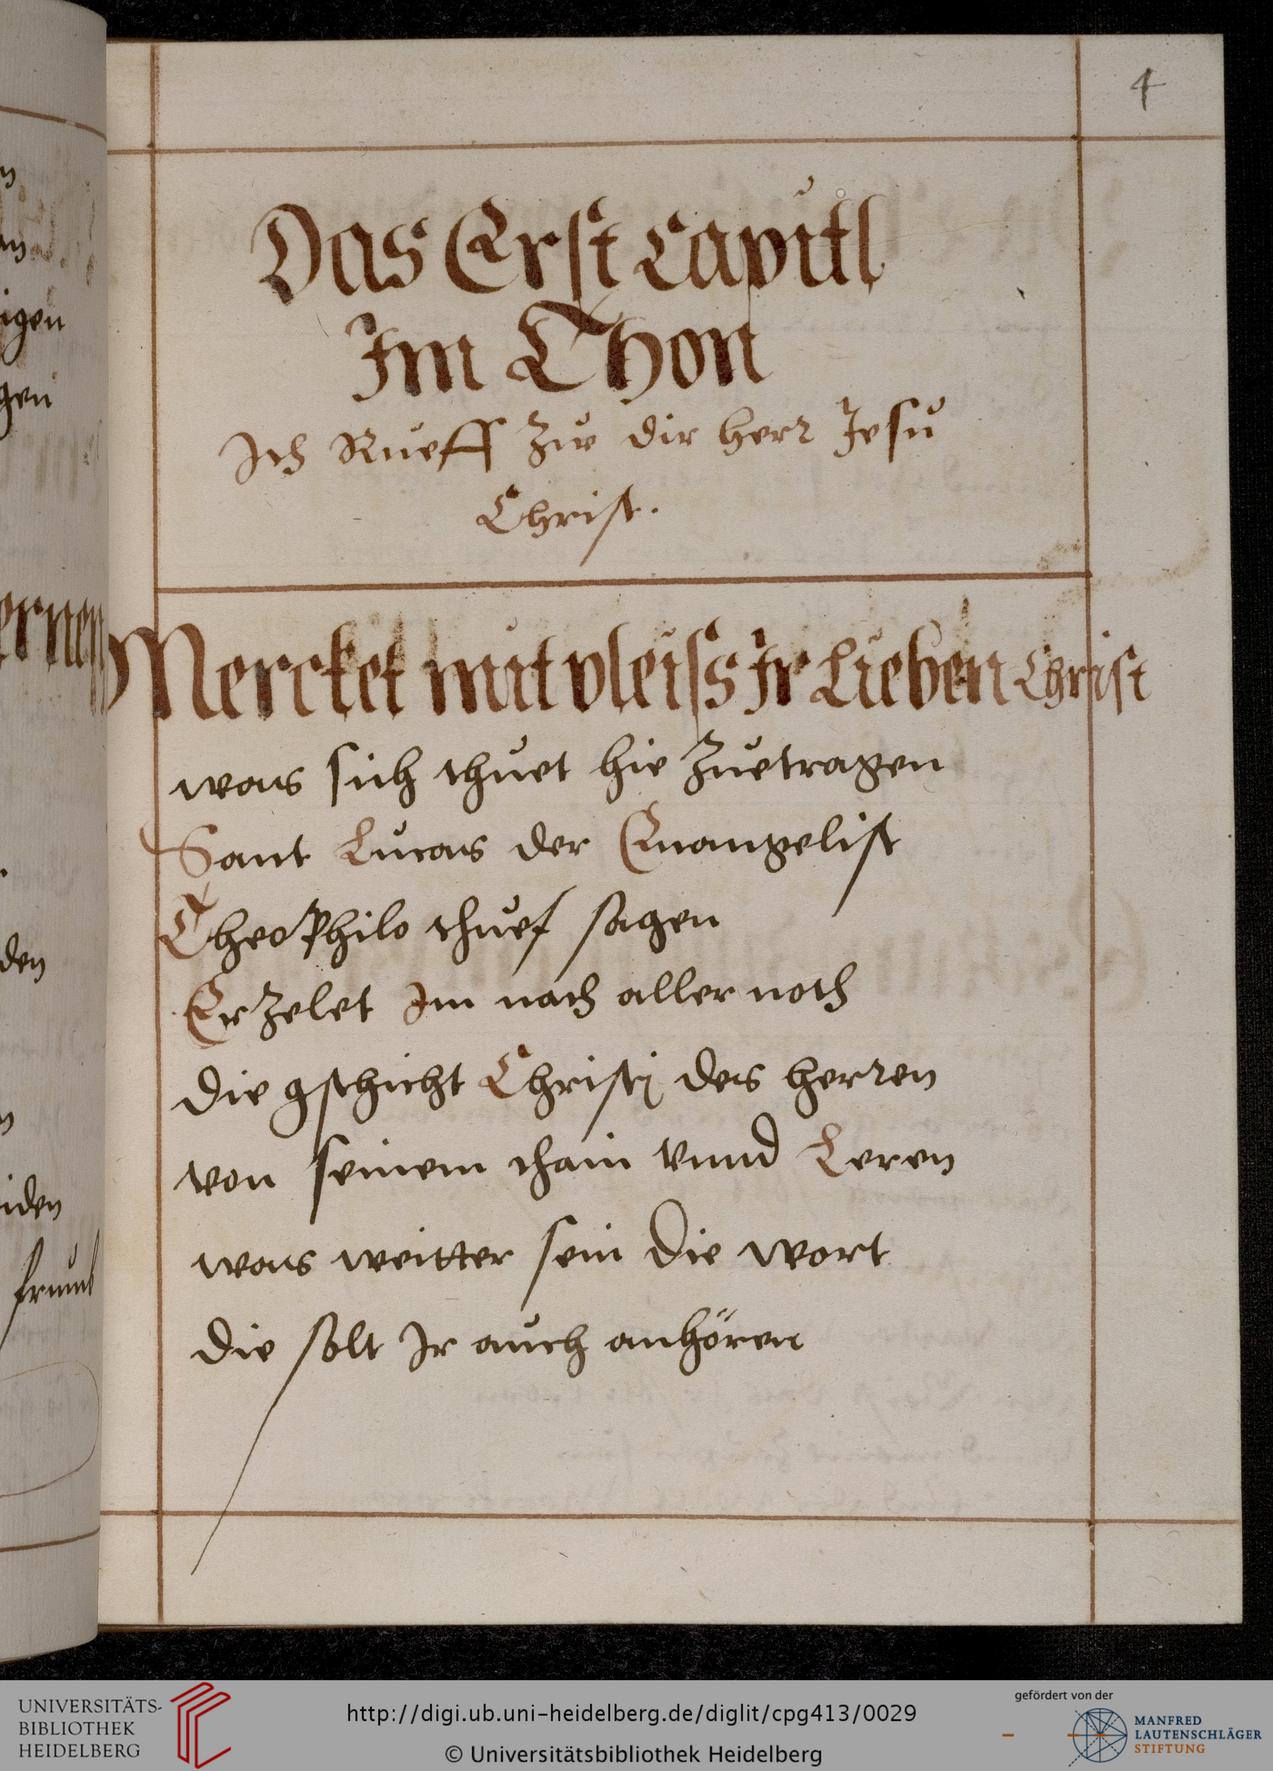 4
Das Erst Capitl
Im Thon
Ich Rueff Zue dir herr Jesu
Christ.
Mercket mit vleiss Ir Lieben Christ
was sich thuet hie Zuetragen
Sant Lucas der Euangelist
Theophilo thuet sagen
Erzelet Im nach aller noth
die gschicht Christj des herren
von seinem thain vnnd Leren
was weitter sein die wort
die solt Ir auch anhören
igen
gen
ernen
den
iden
UNIVERSITÄTS-
BIBLIOTHEK
HEIDELBERG
http://digi.ub.uni-heidelberg.de/diglit/cpg413/0029
© Universitätsbibliothek Heidelberg
gefördert von der
MANFRED
LAUTENSCHLÄGER
STIFTUNG